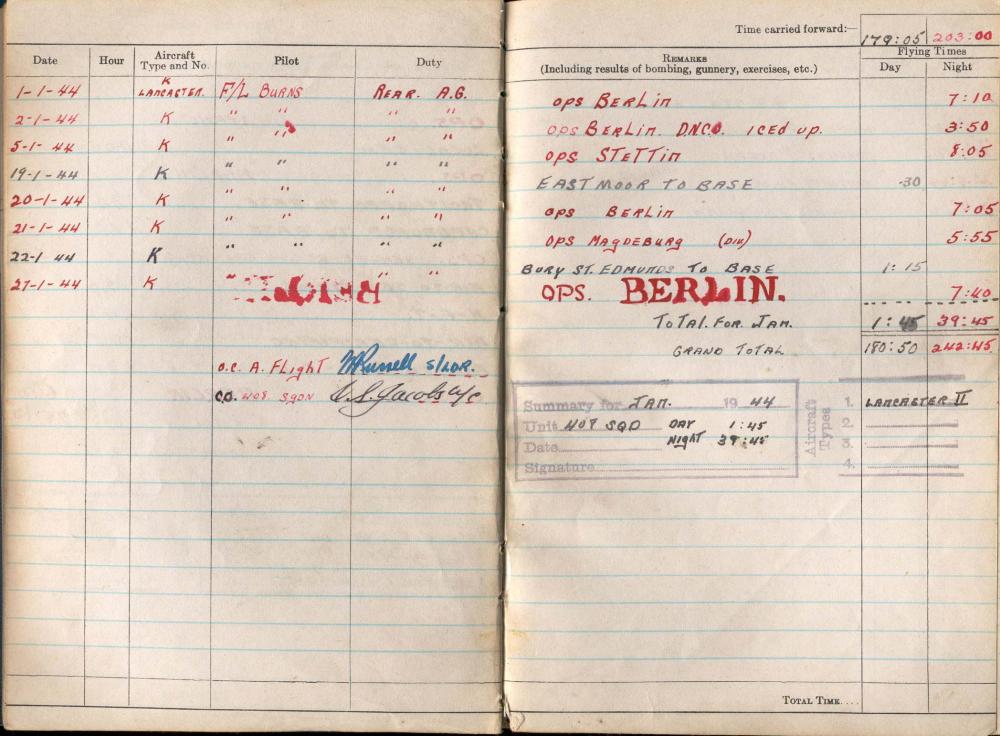 Time carried forward:— 179:05 203:00
Date Hour Aircraft Type and No. Pilot Duty REMARKS (Including results of bombing, gunnery, exercises, etc.) Flying Times Day Night
1-1-44 K LANCASTER. F/L BURNS REAR. A.G. OPS BERLIN 7:10
2-1-44 K " " " " OPS BERLIN. DNCO. ICED UP. 3:50
5-1-44 K " " " " OPS STETTIN 8:05
19-1-44 K " " " " EAST MOOR TO BASE ·30
20-1-44 K " " " " OPS BERLIN 7:05
21-1-44 K " " " " OPS MAGDEBURG (DIV) 5:55
22-1 44 K " " " " BURY ST. EDMUNDS TO BASE 1:15
27-1-44 K " " OPS. BERLIN. 7:40
TOTAL. FOR. JAN. 1:45 39:45
GRAND TOTAL 180:50 242:45
O.C. A. FLIGHT S/LDR.
C.O. 408 SQDN
Summary for JAN. 19 44
Unit 408 SQD DAY 1:45
Date NIGHT 39:45
Signature
Aircraft Types
1. LANCASTER II
2.
3.
4.
TOTAL TIME....